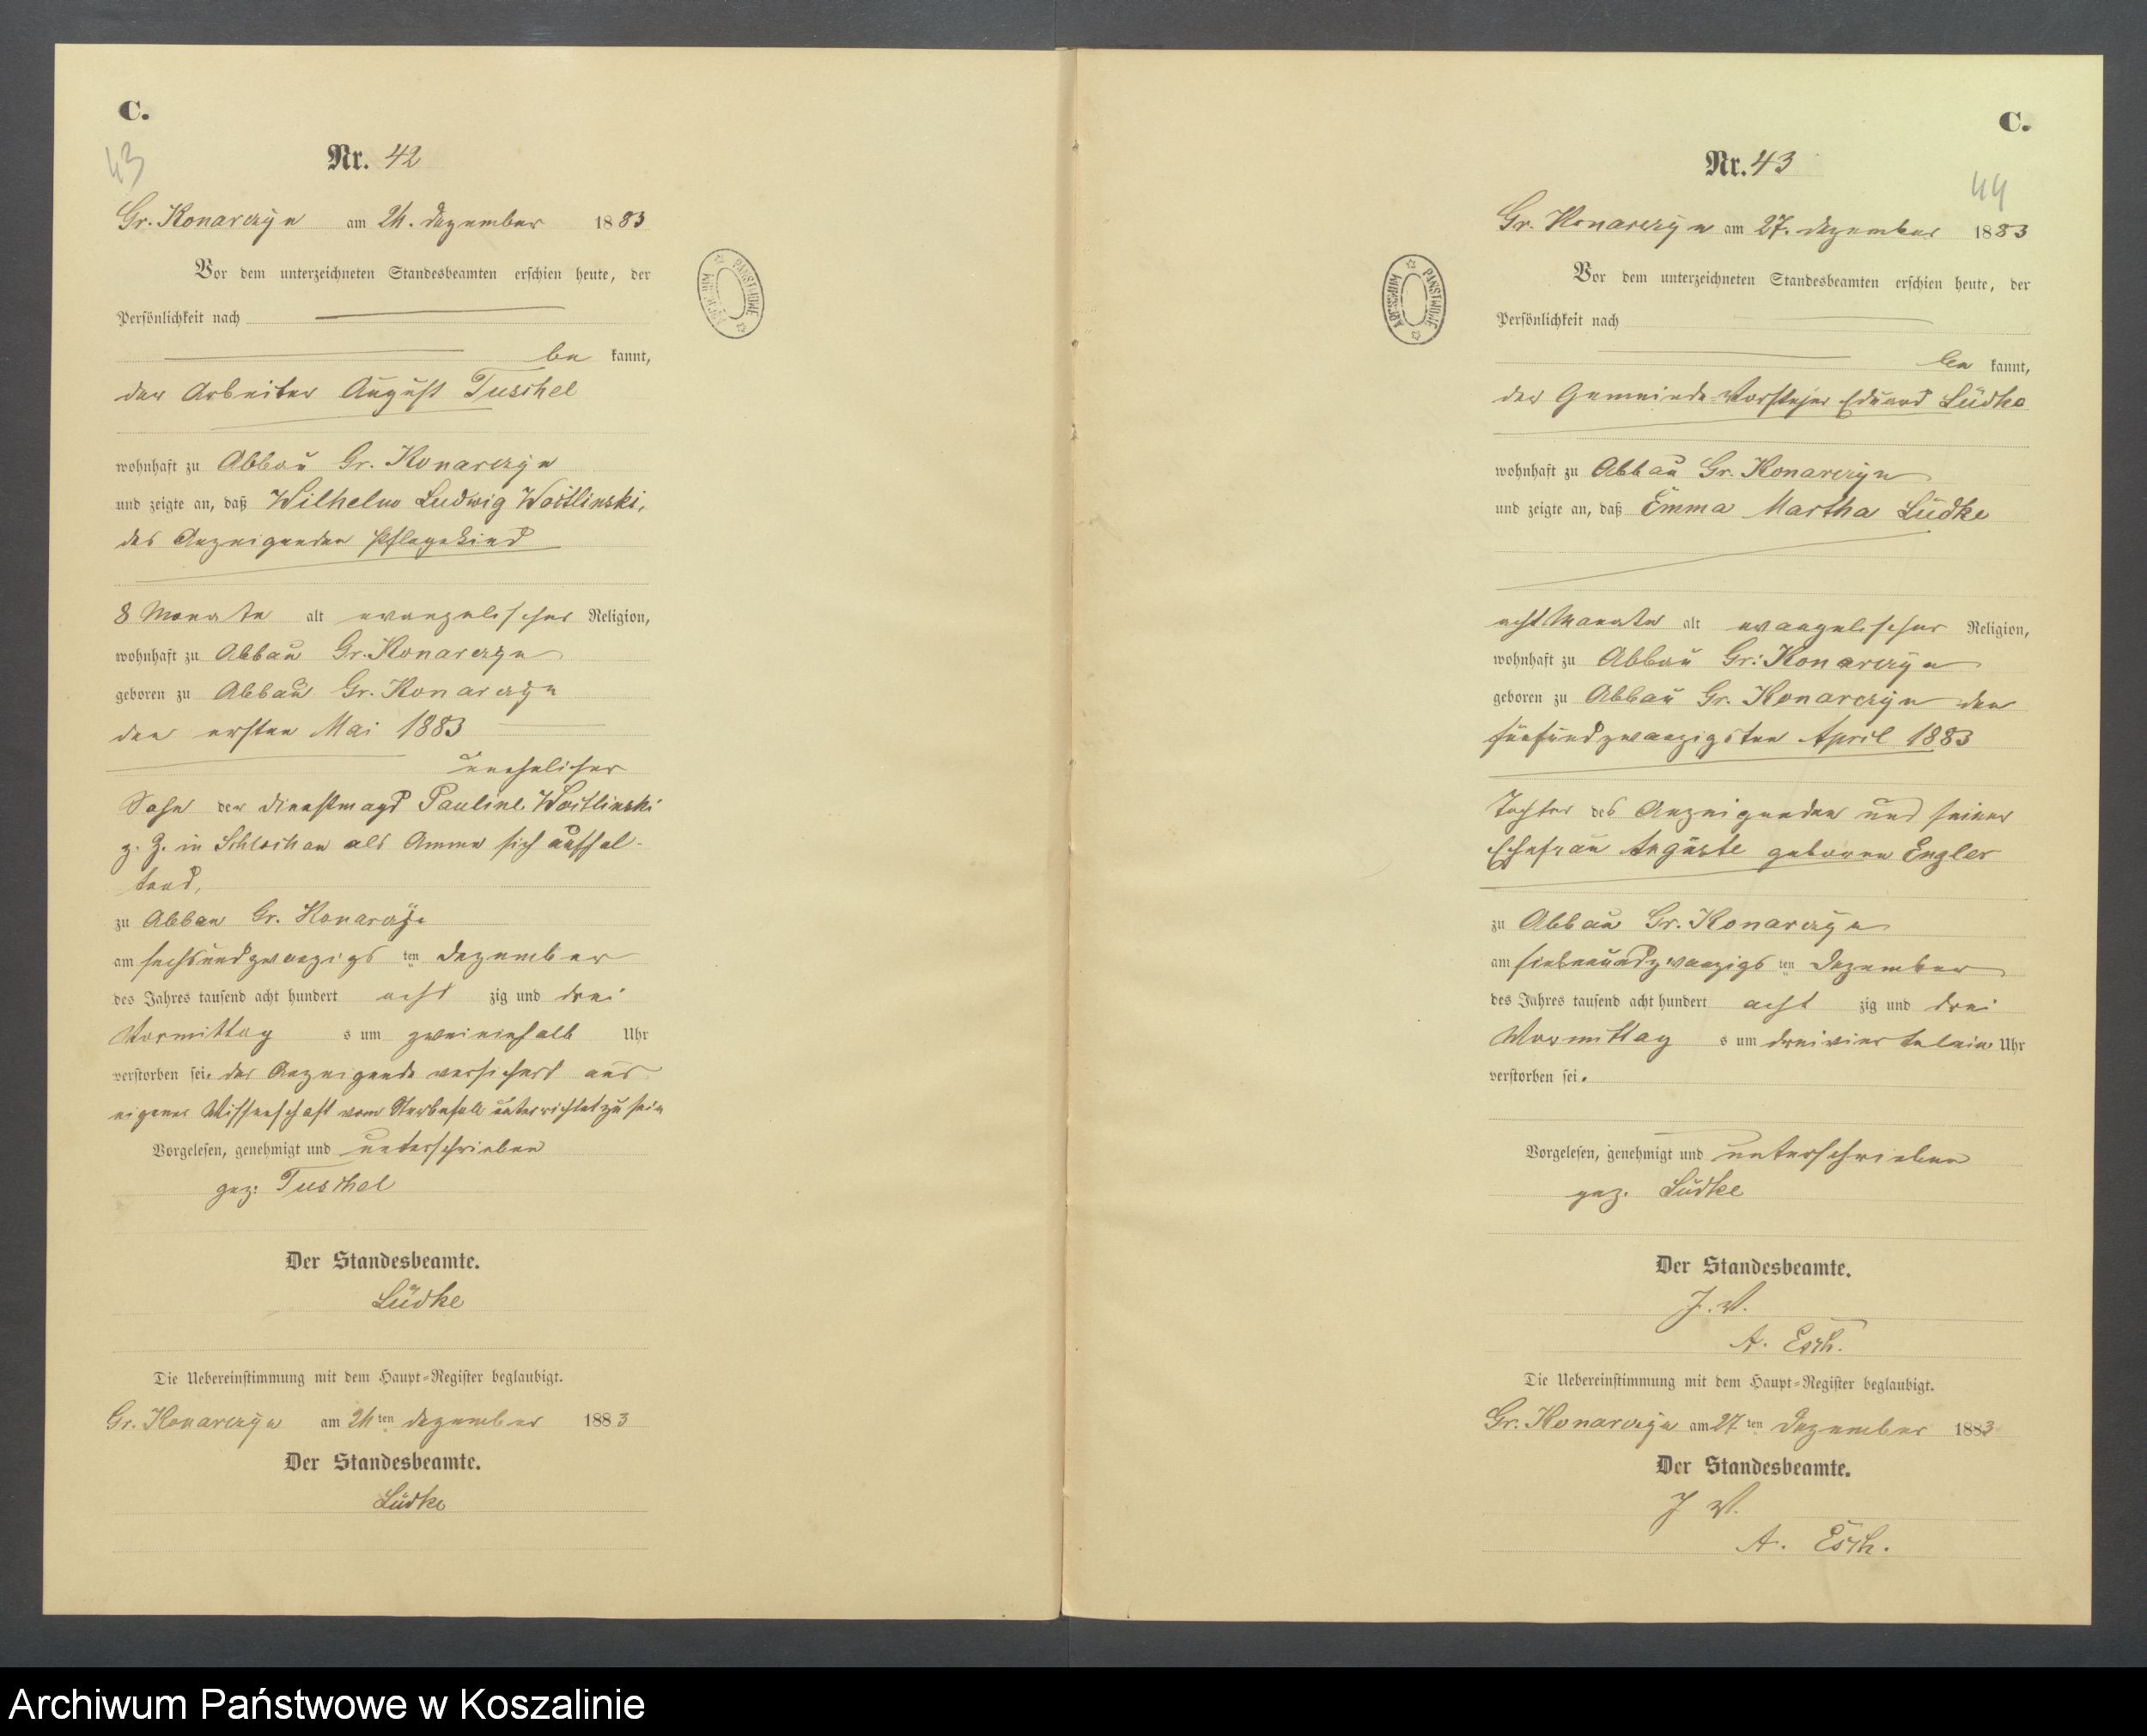 C.
43
Nr. 42
Gr. Konarczyn am 26. Dezember 1883
Vor dem unterzeichneten Standesbeamten erschien heute, der
Persönlichkeit nach
be kannt,
der Arbeiter August Tuschel
wohnhaft zu Abbau Gr. Konarczyn
und zeigte an, daß Wilhelm Ludwig Woitlinski,
des Anzeigenden Pflegekind
8 Monate alt evangelischer Religion,
wohnhaft zu Abbau Gr. Konarczyn
geboren zu Abbau Gr. Konarczyn
den ersten Mai 1883
unehelicher
Sohn der Dienstmagd Pauline Woitlinski
z. Z. in Schlochau als Amme sich aufhal-
tend,
zu Abbau Gr. Konarczyn
am sechsundzwanzigs ten Dezember
des Jahres tausend acht hundert acht zig und drei
Vormittag s um zweieinhalb Uhr
verstorben sei. der Anzeigende versichert aus
eigener Wissenschaft vom Sterbefall unterrichtet zu sein
Vorgelesen, genehmigt und unterschrieben
gez: Tuschel
Der Standesbeamte.
Lüdke
Die Uebereinstimmung mit dem Haupt-Register beglaubigt.
Gr. Konarczyn am 26 ten Dezember 1883
Der Standesbeamte.
Lüdke
ARCHIWUM PAŃSTWOWE
C.
44
Nr. 43
Gr. Konarczyn am 27. Dezember 1883
Vor dem unterzeichneten Standesbeamten erschien heute, der
Persönlichkeit nach
be kannt,
der Gemeinde-Vorsteher Eduard Lüdke
wohnhaft zu Abbau Gr. Konarczyn
und zeigte an, daß Emma Martha Lüdke
acht Monate alt evangelischer Religion,
wohnhaft zu Abbau Gr. Konarczyn
geboren zu Abbau Gr. Konarczyn den
fünfundzwanzigsten April 1883
Tochter des Anzeigenden und seiner
Ehefrau Auguste geborne Engler
zu Abbau Gr. Konarczyn
am siebenundzwanzigs ten Dezember
des Jahres tausend acht hundert acht zig und drei
Vormittag s um dreiviertelein Uhr
verstorben sei.
Vorgelesen, genehmigt und unterschrieben
gez. Lüdke
Der Standesbeamte.
J. V.
A. Esch.
Die Uebereinstimmung mit dem Haupt-Register beglaubigt.
Gr. Konarczyn am 27 ten Dezember 1883
Der Standesbeamte.
J V.
A. Esch.
ARCHIWUM PAŃSTWOWE
Archiwum Państwowe w Koszalinie